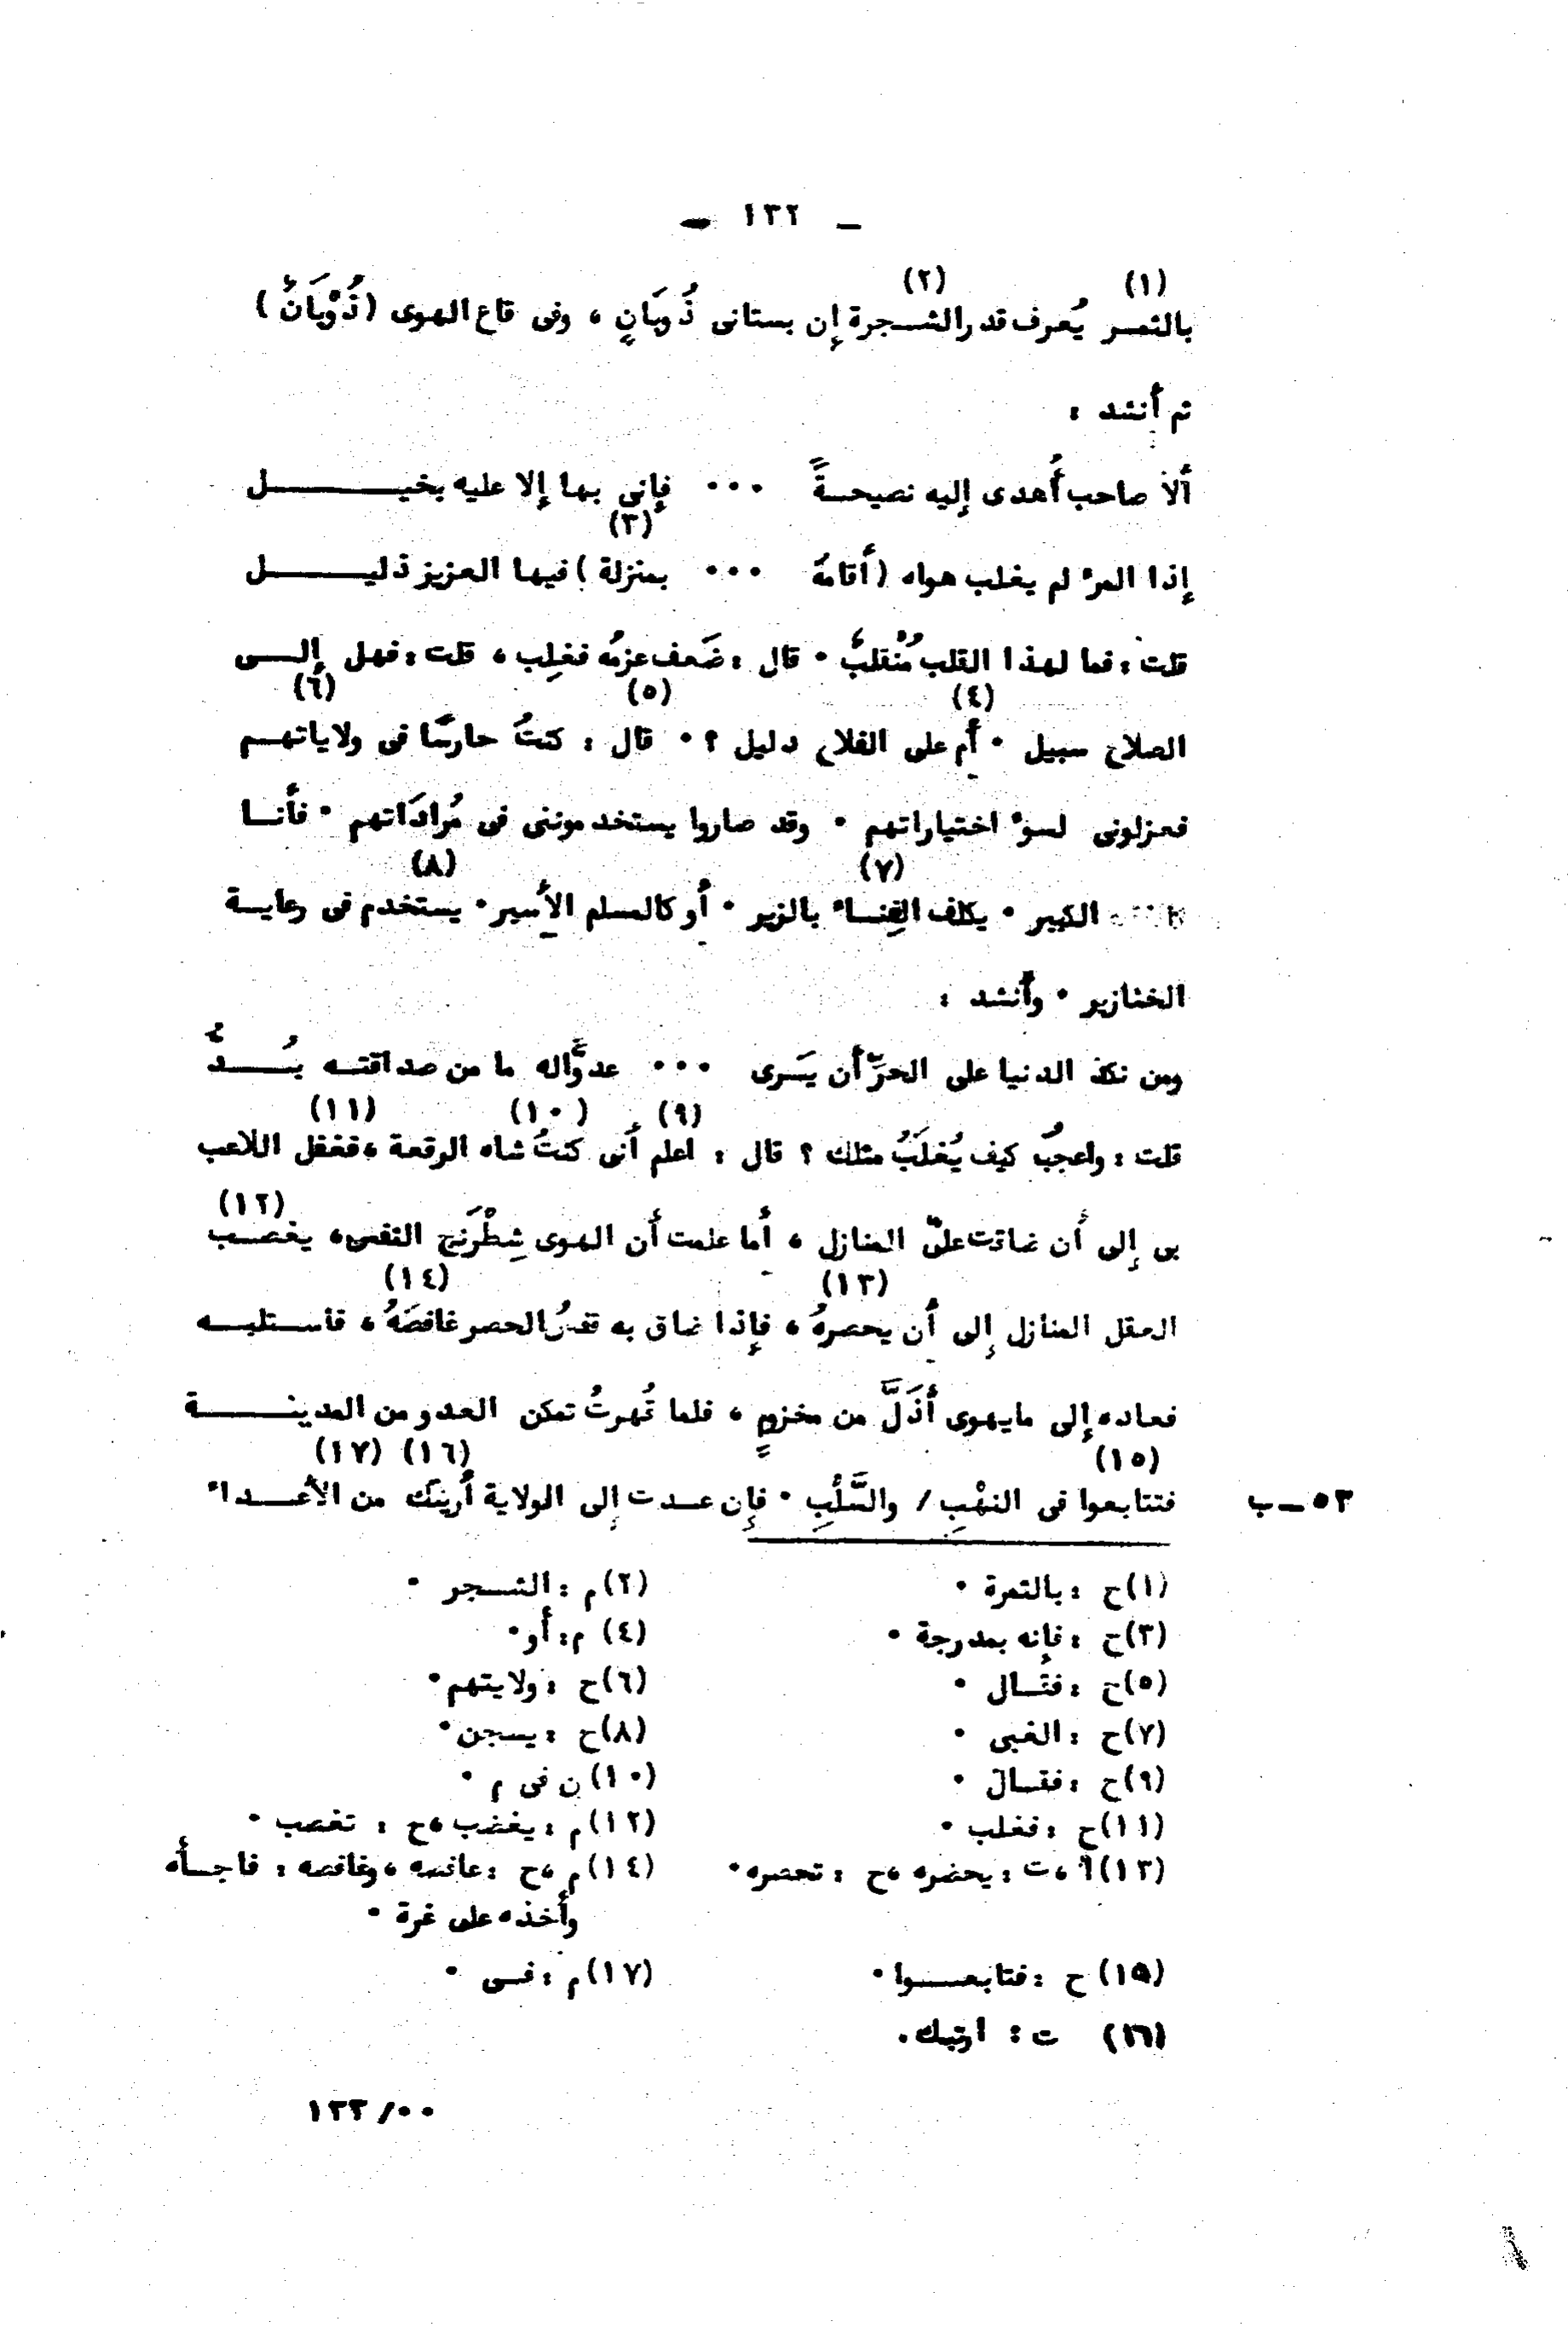 ـ ١٣٢ ـ
(١) (٢)
بالثمـر يُعرف قدر الشـجرة إن بستانى ذُوبَانٍ ، وفى قاع الهوى (ذُوْبَانُ)
ثم أنشد :
ألا صاحب أُهدى إليه نصيحـةً ٠٠٠ فإنى بها إلا عليه بخيـــــل
(٣)
إذا المرء لم يغلب هواه (أقامهُ ٠٠٠ بمنزلة) فيها العزيز ذليـــــل
قلت : فما لهذا القلب مُنْقلبُ ٠ قال : ضَعف عزمُه فغلِب ، قلت : فهل إلـى
(٤) (٥) (٦)
الصلاح سبيل ٠ أم على الفلاح دليل ؟ ٠ قال : كنتُ حارسًا فى ولاياتهـم
فعزلونى لسوء اختياراتهم ٠ وقد صاروا يستخدموننى فى مُرادَاتهم ٠ فأنـا
(٧) (٨)
الكبير ٠ يكلف القِنـاء بالزير ٠ أو كالمسلم الأسير ٠ يستخدم فى رعايـة
الخنازير ٠ وأنشد :
ومن نكد الدنيا على الحرِّ أن يَـرى ٠٠٠ عدوًّا له ما من صداقتـه بُـــدُّ
(٩) (١٠) (١١)
قلت : واعجبُ كيف يُغلَبُ مثلك ؟ قال : اعلم أنى كنتُ شاه الرقعة ، فغفل اللاعب
(١٢)
بى إلى أن ضاقت علىّ المنازل ، أما علمت أن الهوى شِطْرَنج النفس ، يغصـب
(١٣) (١٤)
العقل المنازل إلى أن يحصرهُ ، فإذا ضاق به قدرُ الحصر غافصَهُ ، فاسـتلبـه
فعاده إلى مايهوى أَذَلَّ من مخزمٍ ، فلما قُهرتُ تمكن العدو من المدينـــة
(١٥) (١٦) (١٧)
فتتابعوا فى النهْبِ / والسَّلْبِ ٠ فإن عـدت إلى الولاية أُرينك من الأعـداء ٥٣ ـ ب
(١) ح : بالثمرة ٠ (٢) م : الشـجر ٠
(٣) ح : فإنه بمدرجة ٠ (٤) م : أو ٠
(٥) ح : فقـال ٠ (٦) ح : ولايتهم ٠
(٧) ح : الغبى ٠ (٨) ح : يسجن ٠
(٩) ح : فقـال ٠ (١٠) ن فى م ٠
(١١) ح : فغلب ٠ (١٢) م : يغضب ، ح : تغصب ٠
(١٣) أ ، ت : يحضره ، ح : تحصره ٠ (١٤) م ، ح : عافصه ، وغافصه : فاجـأه
وأخذه على غرة ٠
(١٥) ح : فتابعـــوا ٠ (١٧) م : فـى ٠
(١٦) ت : ارتبك .
١٣٣/٠٠